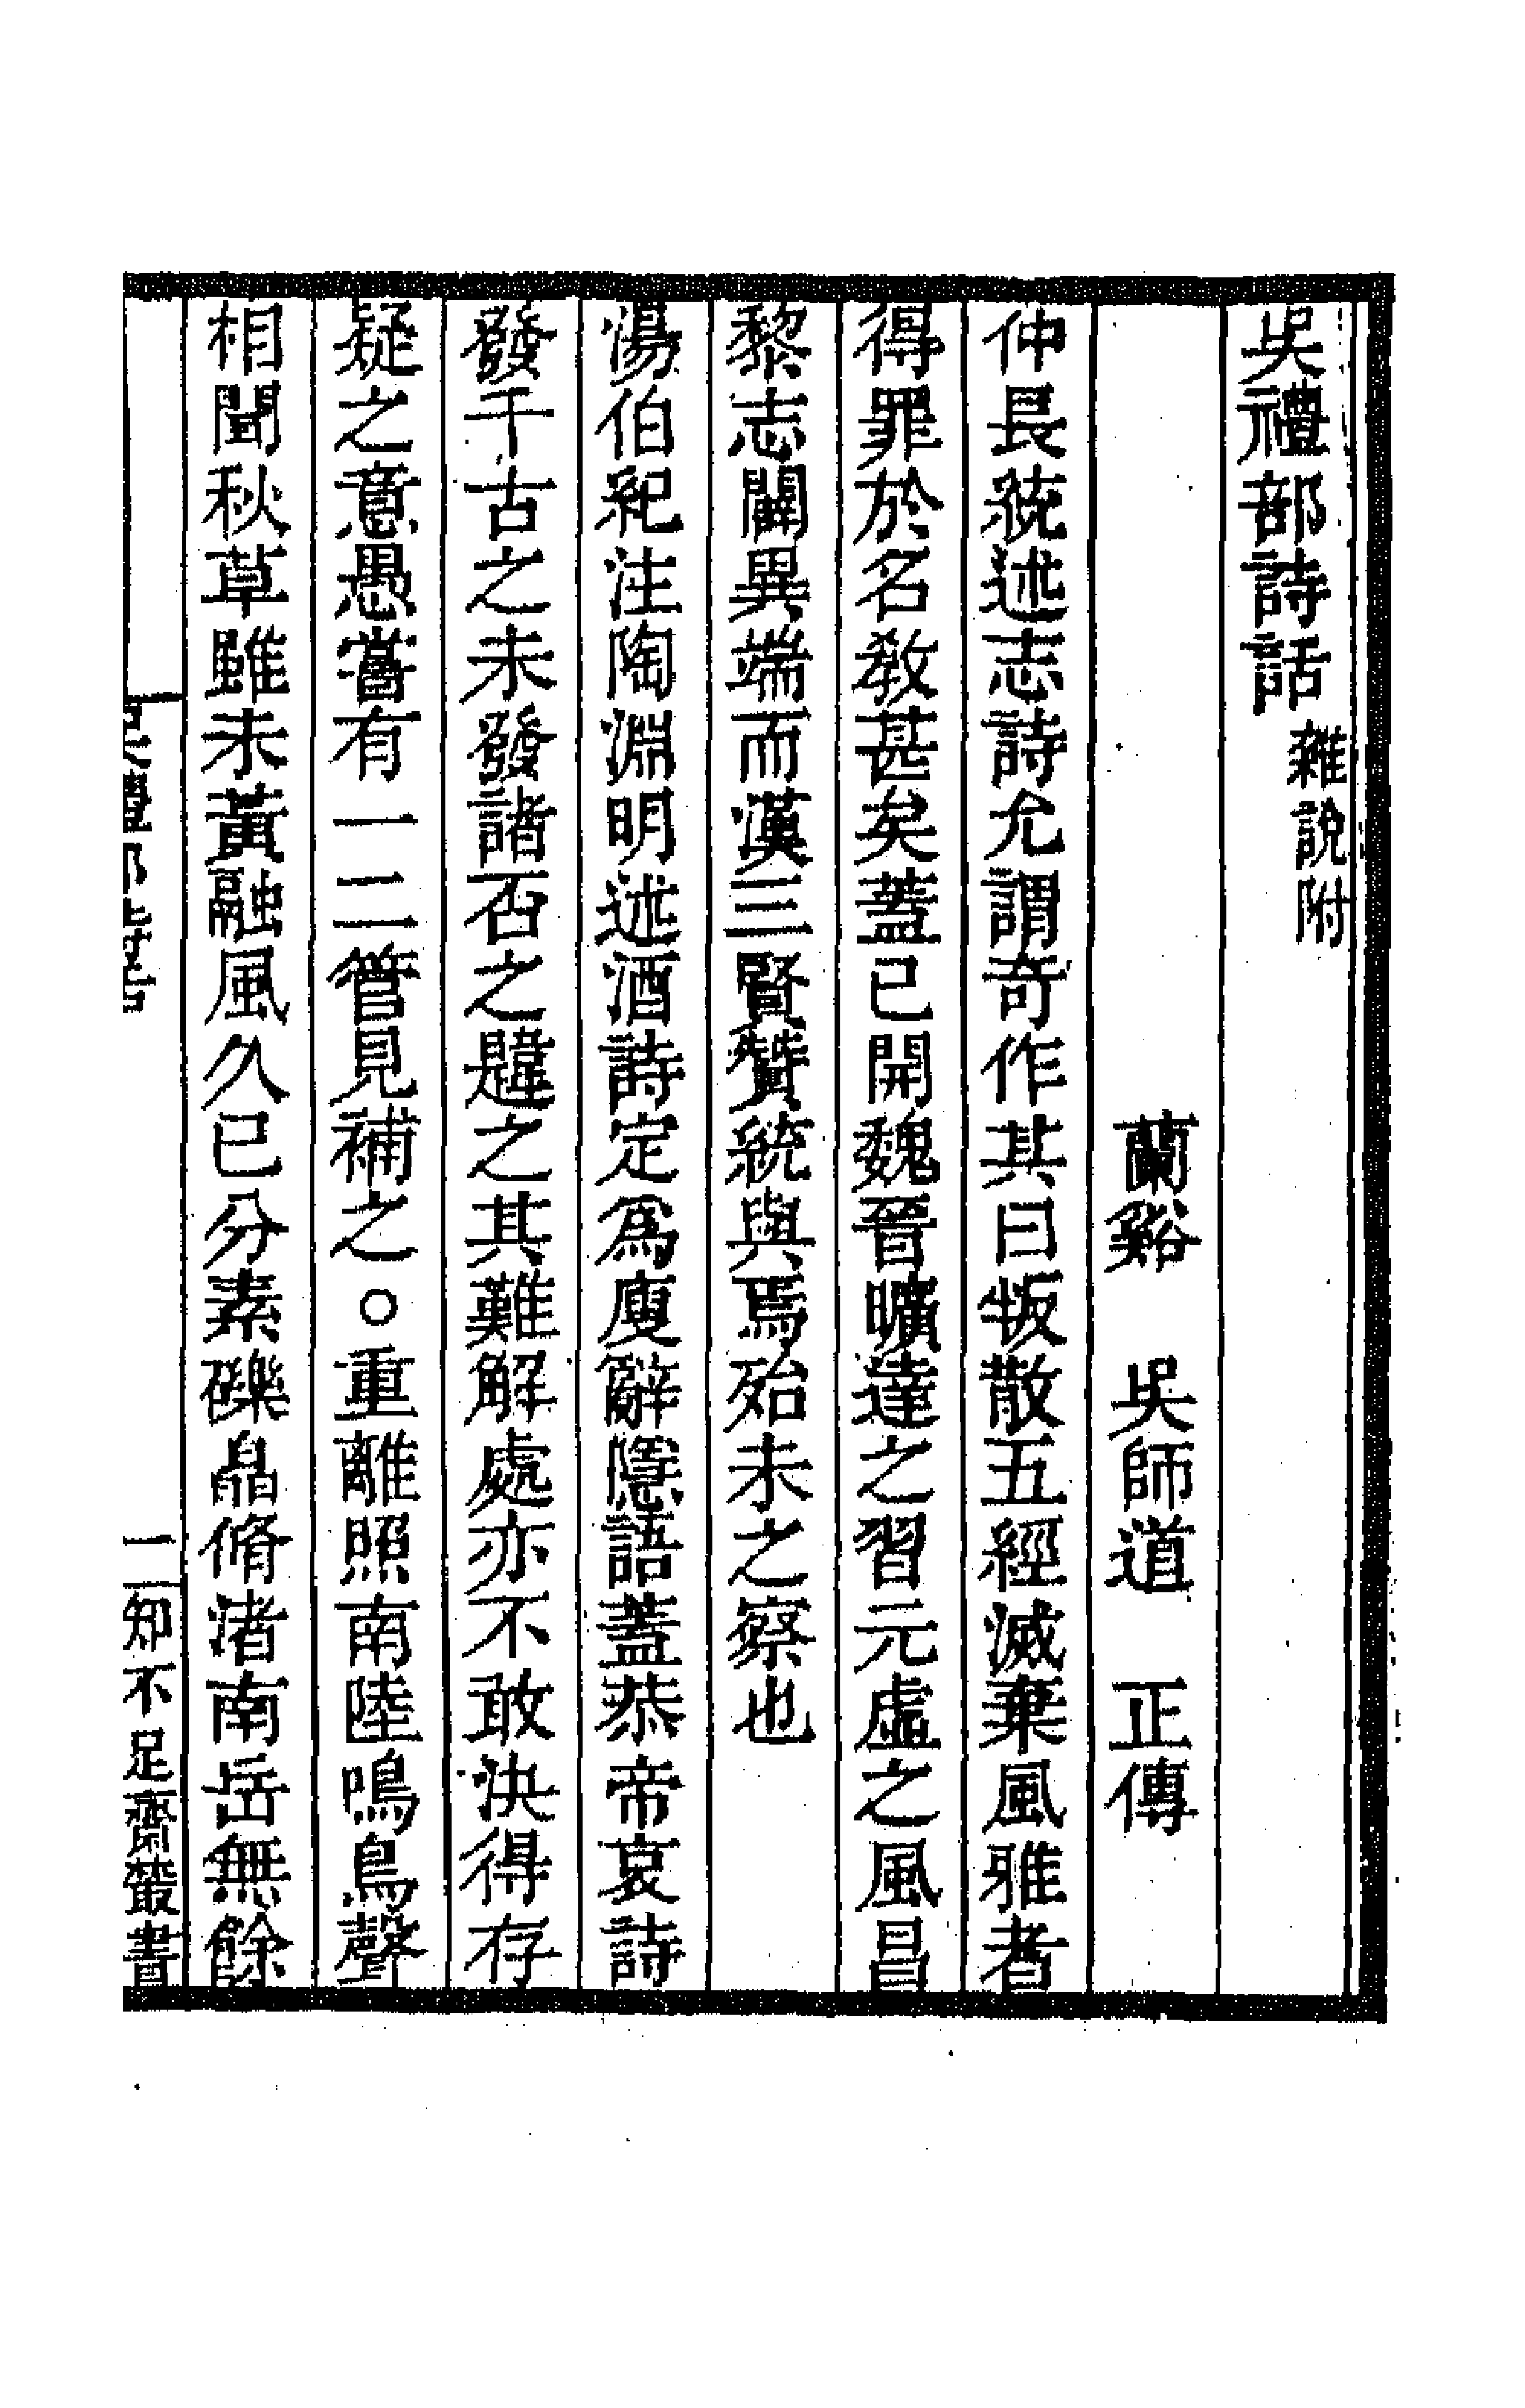 吳禮部詩話 雜說附
蘭谿 吳師道 正傳
仲長統述志詩允謂奇作其曰叛散五經滅棄風雅者
得罪於名教甚矣蓋已開魏晉曠達之習元虛之風昌
黎志闢異端而漢三賢贊統與焉殆未之察也
湯伯紀注陶淵明述酒詩定爲廋辭隱語蓋恭帝哀詩
發千古之未發諸否之韙之其難解處亦不敢決得存
疑之意愚嘗有一二管見補之○重離照南陸鳴鳥聲
相聞秋草雖未黃融風久已分素礫皛脩渚南岳無餘
吳禮部詩話 一 知不足齋叢書